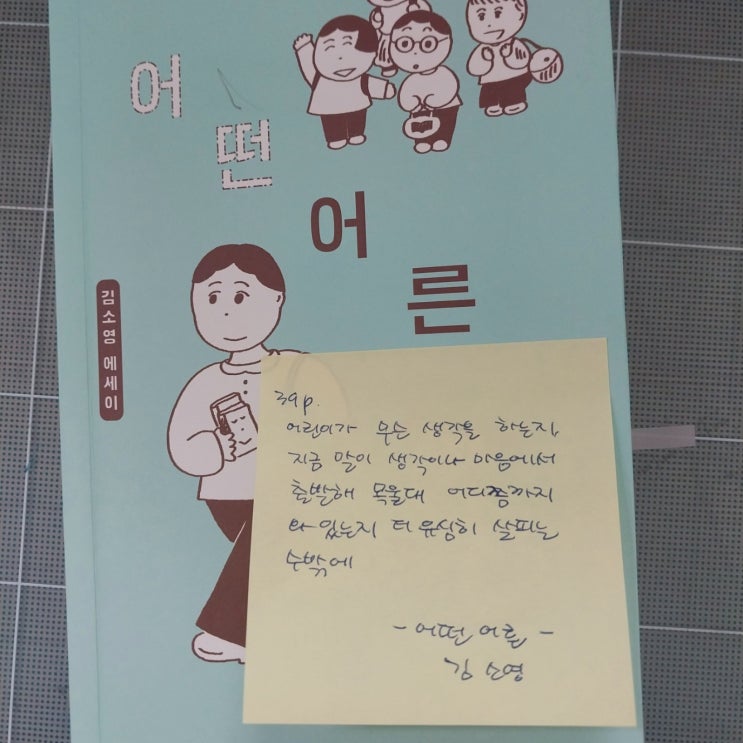 어떤
어른
김소영 에세이
39p.
어린이가 무슨 생각을 하는지,
지금 말이 생각이나 마음에서
출발해 목울대 어디쯤까지
와 있는지 더 유심히 살피는
수밖에
- 어떤 어른 -
김소영